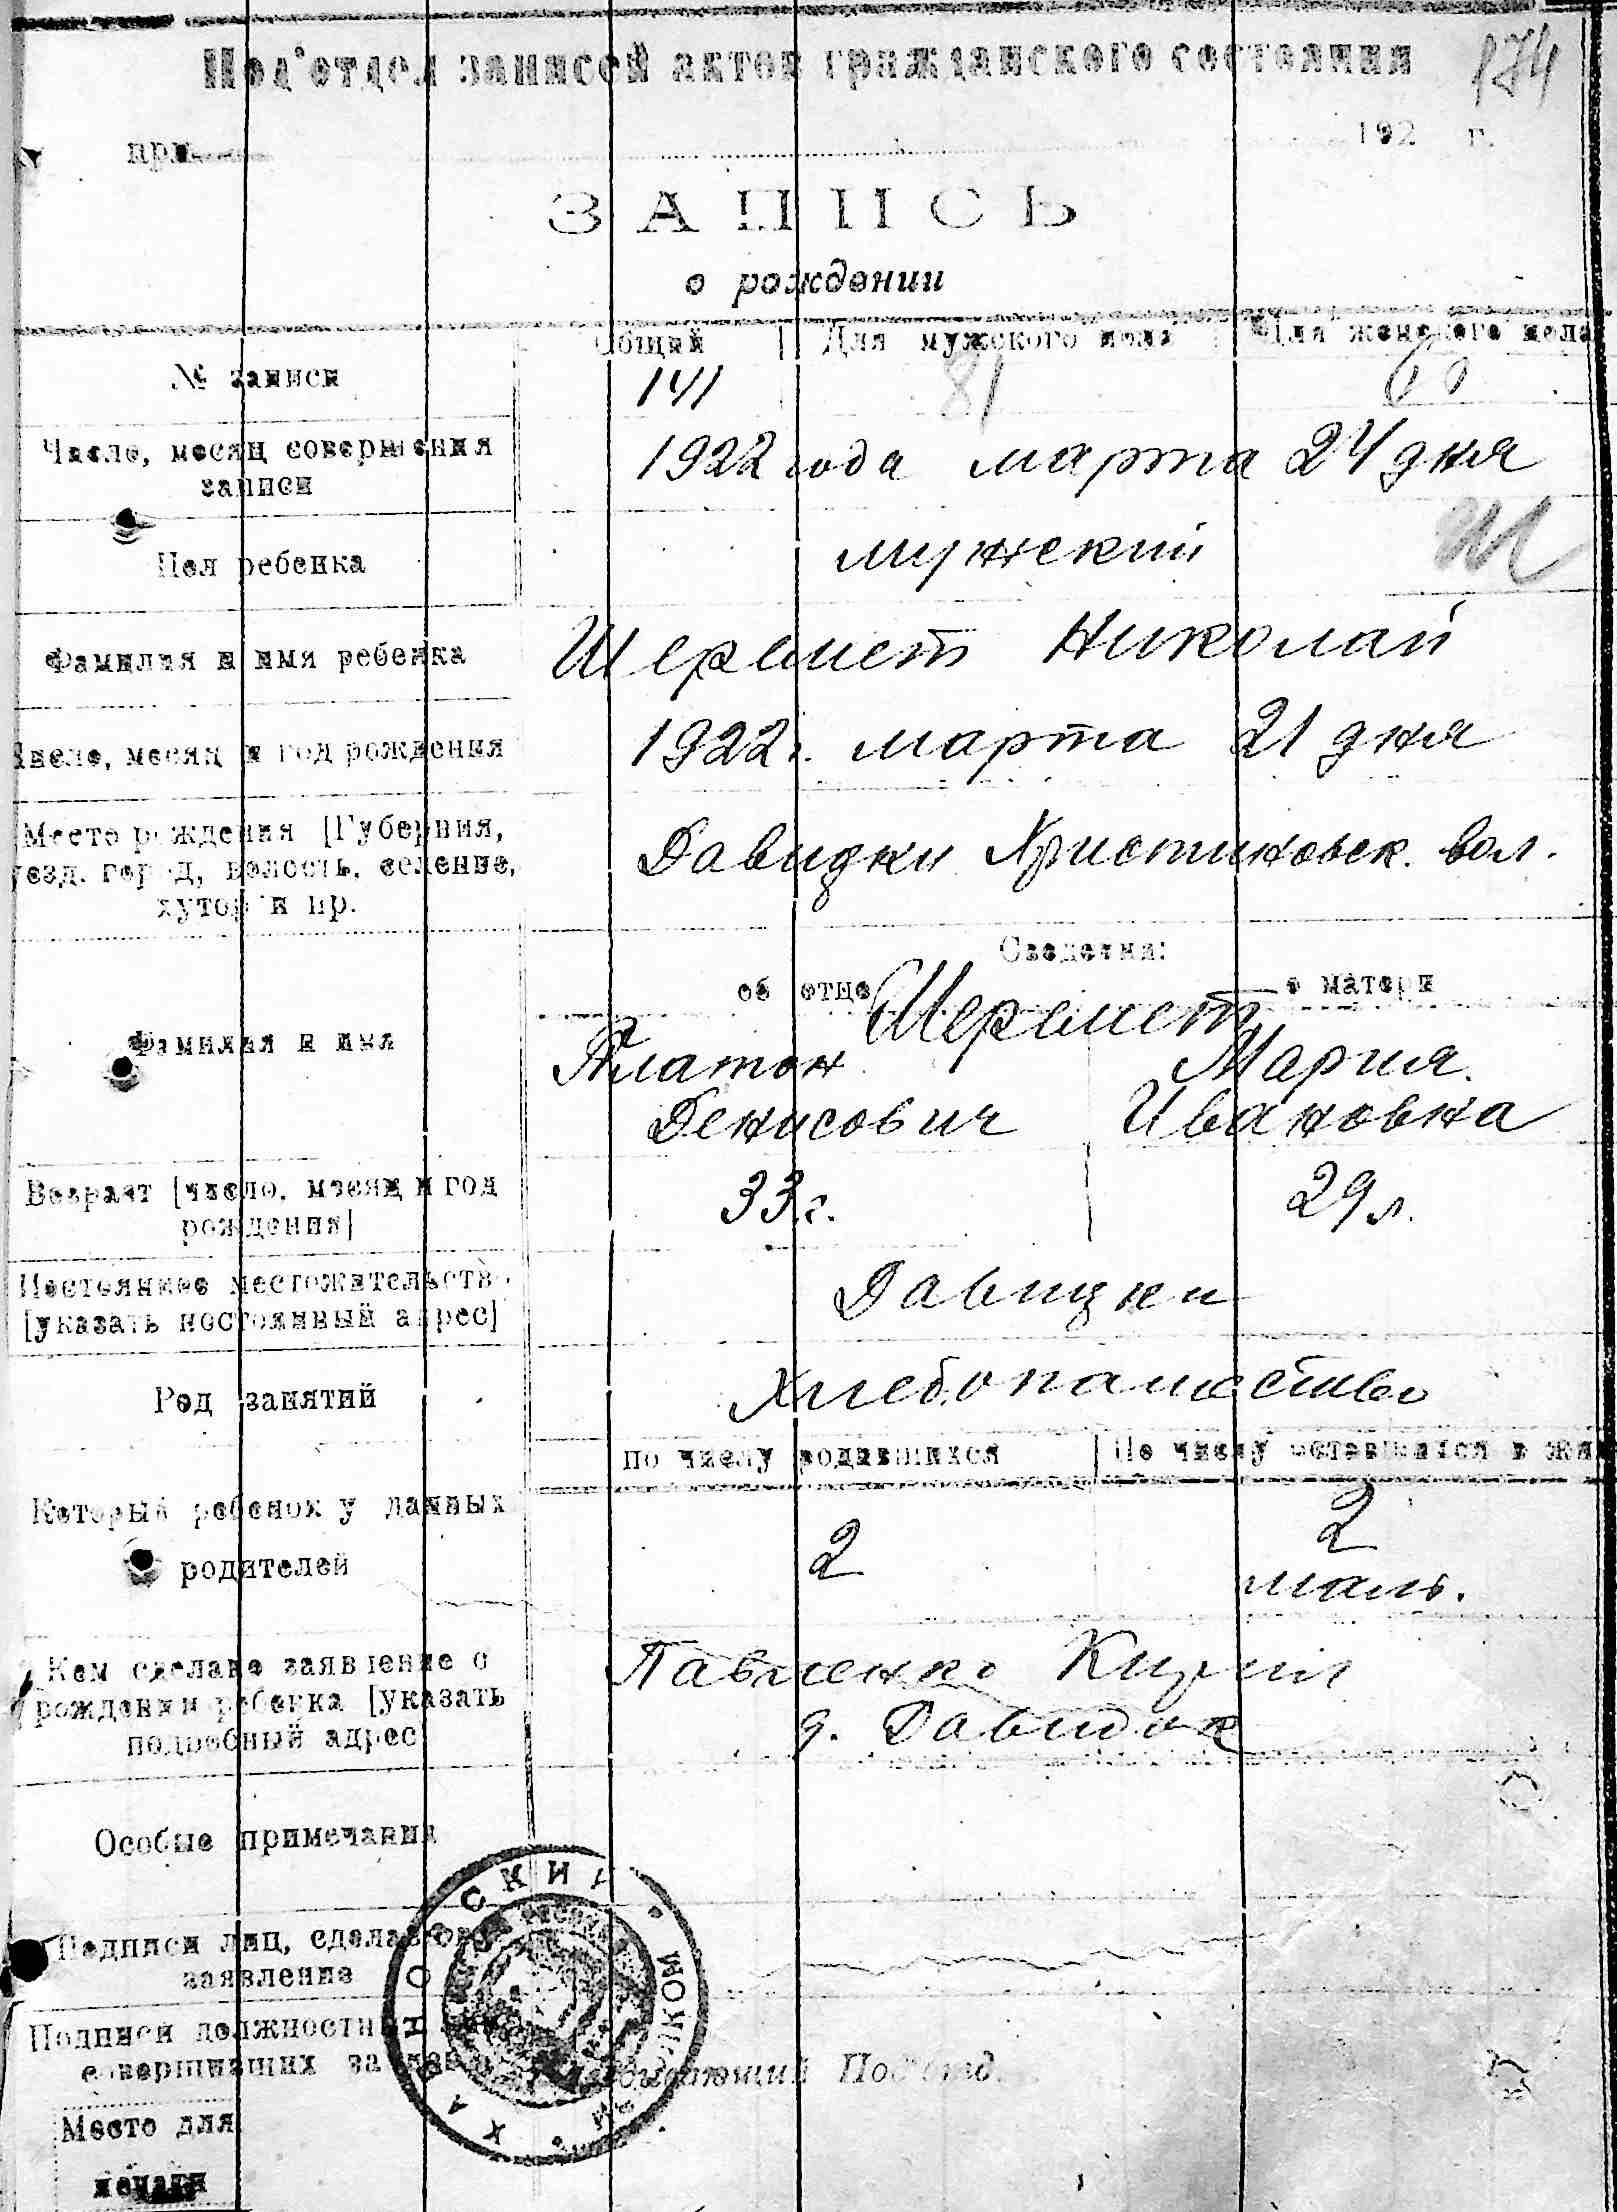 Под'отдел записей актов гражданского состояния 174
при 192 г.
ЗАПИСЬ
о рождении
Общий Для мужского пола Для женского пола
№ записи 141 81 60
Число, месяц совершения записи 1922 года марта 24 дня
Пол ребенка мужский
Фамилия и имя ребенка Шеремет Николай
Число, месяц и год рождения 1922 г. марта 21 дня
Место рождения [Губерния,
уезд, город, волость, селение, Давидки Христиновск. вол.
хутор и пр.
Сведения:
об отце о матери
Шеремет
Фамилия и имя Платон Мария.
Денисович Ивановна
Возраст [число, месяц и год
рождения] 33 г. 29 л.
Постоянное местожительство
[указать постоянный адрес] Давидки
Род занятий Хлебопашество
по числу родившихся По числу оставшихся в жив
Который ребенок у данных
родителей 2 2
маль.
Кем сделано заявление о Павленко Кирил
рождении ребенка [указать д. Давидок
подробный адрес
Особые примечания
Подписи лиц, сделавших
заявление
Подписи должностных лиц,
совершивших запись Заведующий Под'отд.
Место для
печати